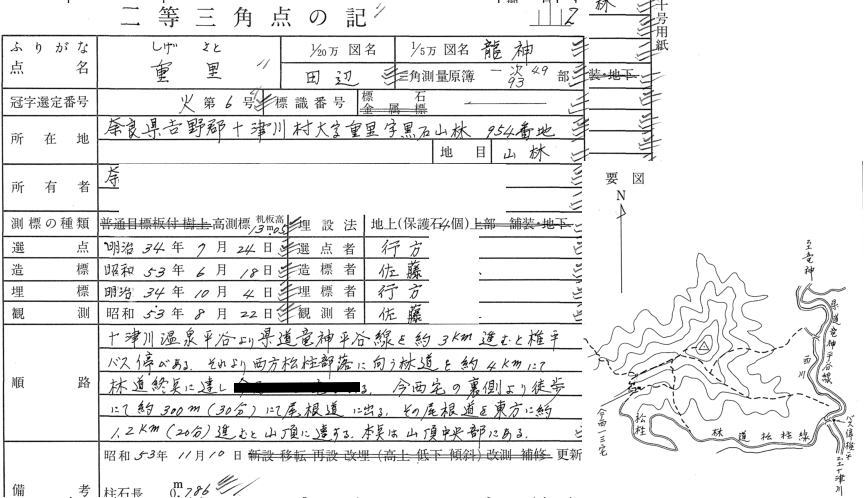 二等三角点の記
2
林
十号用紙
ふりがな しげさと 1/20万 図名 1/5万 図名 龍神
点名 重里 田辺 三角測量原簿 一次93 49 部 装・地下
冠字選定番号 火 第6号 標識番号 標石 金属標
所在地 奈良県吉野郡十津川村大字重里字黒石山林 954番地
地目 山林
所有者
要図
N
測標の種類 普通目標板付 樹上 高測標 机板高 13m.05 埋設法 地上(保護石4個)上部 舗装・地下
選点 明治34年9月24日 選点者 行方
造標 昭和53年6月18日 造標者 佐藤
埋標 明治34年10月4日 埋標者 行方
観測 昭和53年8月22日 観測者 佐藤
順路 十津川温泉平谷より県道竜神平谷線を約3KM進むと椎平
バス停がある。それより西方松柱部落に向う林道を約4KMにて
林道終点に達し 今西宅の裏側より徒歩
にて約300m(30分)にて尾根道に出る。その尾根道を東方に約
1.2KM(20分)進むと山頂に達する。本点は山頂中央部にある。
昭和53年11月10日 新設 移転 再設 改埋(高上 低下 傾斜)改測 補修 更新
備考 柱石長 0m.786
至竜神
県道竜神平谷線
西川
バス停椎平
至十津川
林道松柱線
松柱
今西一三宅